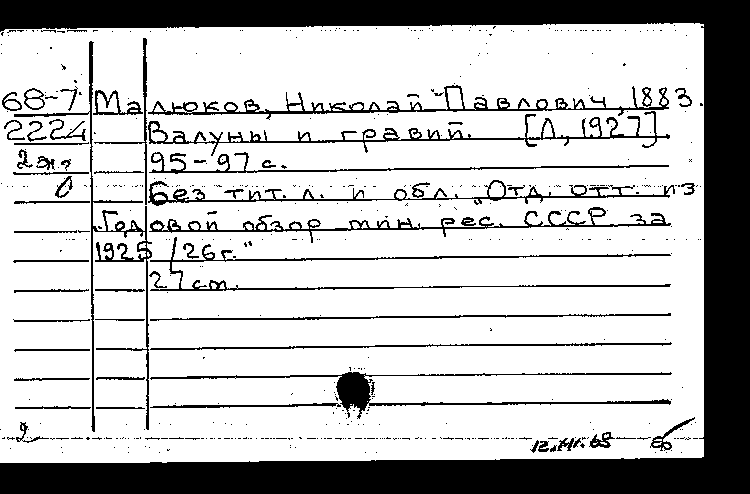 68-7 Малюков, Николай Павлович, 1883.
2224 Валуны и гравий. [Л., 1927].
2 экз 95-97 с.
0 Без тит. л. и обл. "Отд. отт. из
"Годовой обзор мин. рес. СССР за
1925/26г."
27 cm.